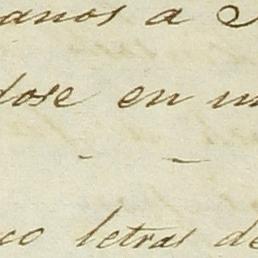 anos a
dose en
co letras de